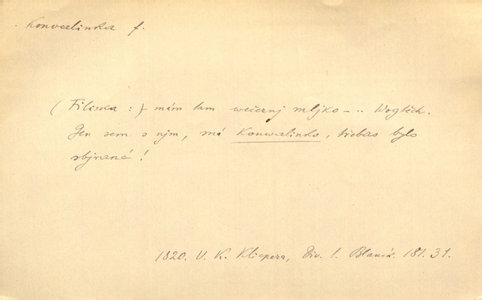 Konvalinka f.
( Filenka : ) mám tam wečernj mljko -.. Wogtěch.
Jen sem s njm, má Konwalinko, třebas bylo
sbjrané !
1820. V. K. Klicpera, Div. 1. Blaník. 181. 31.